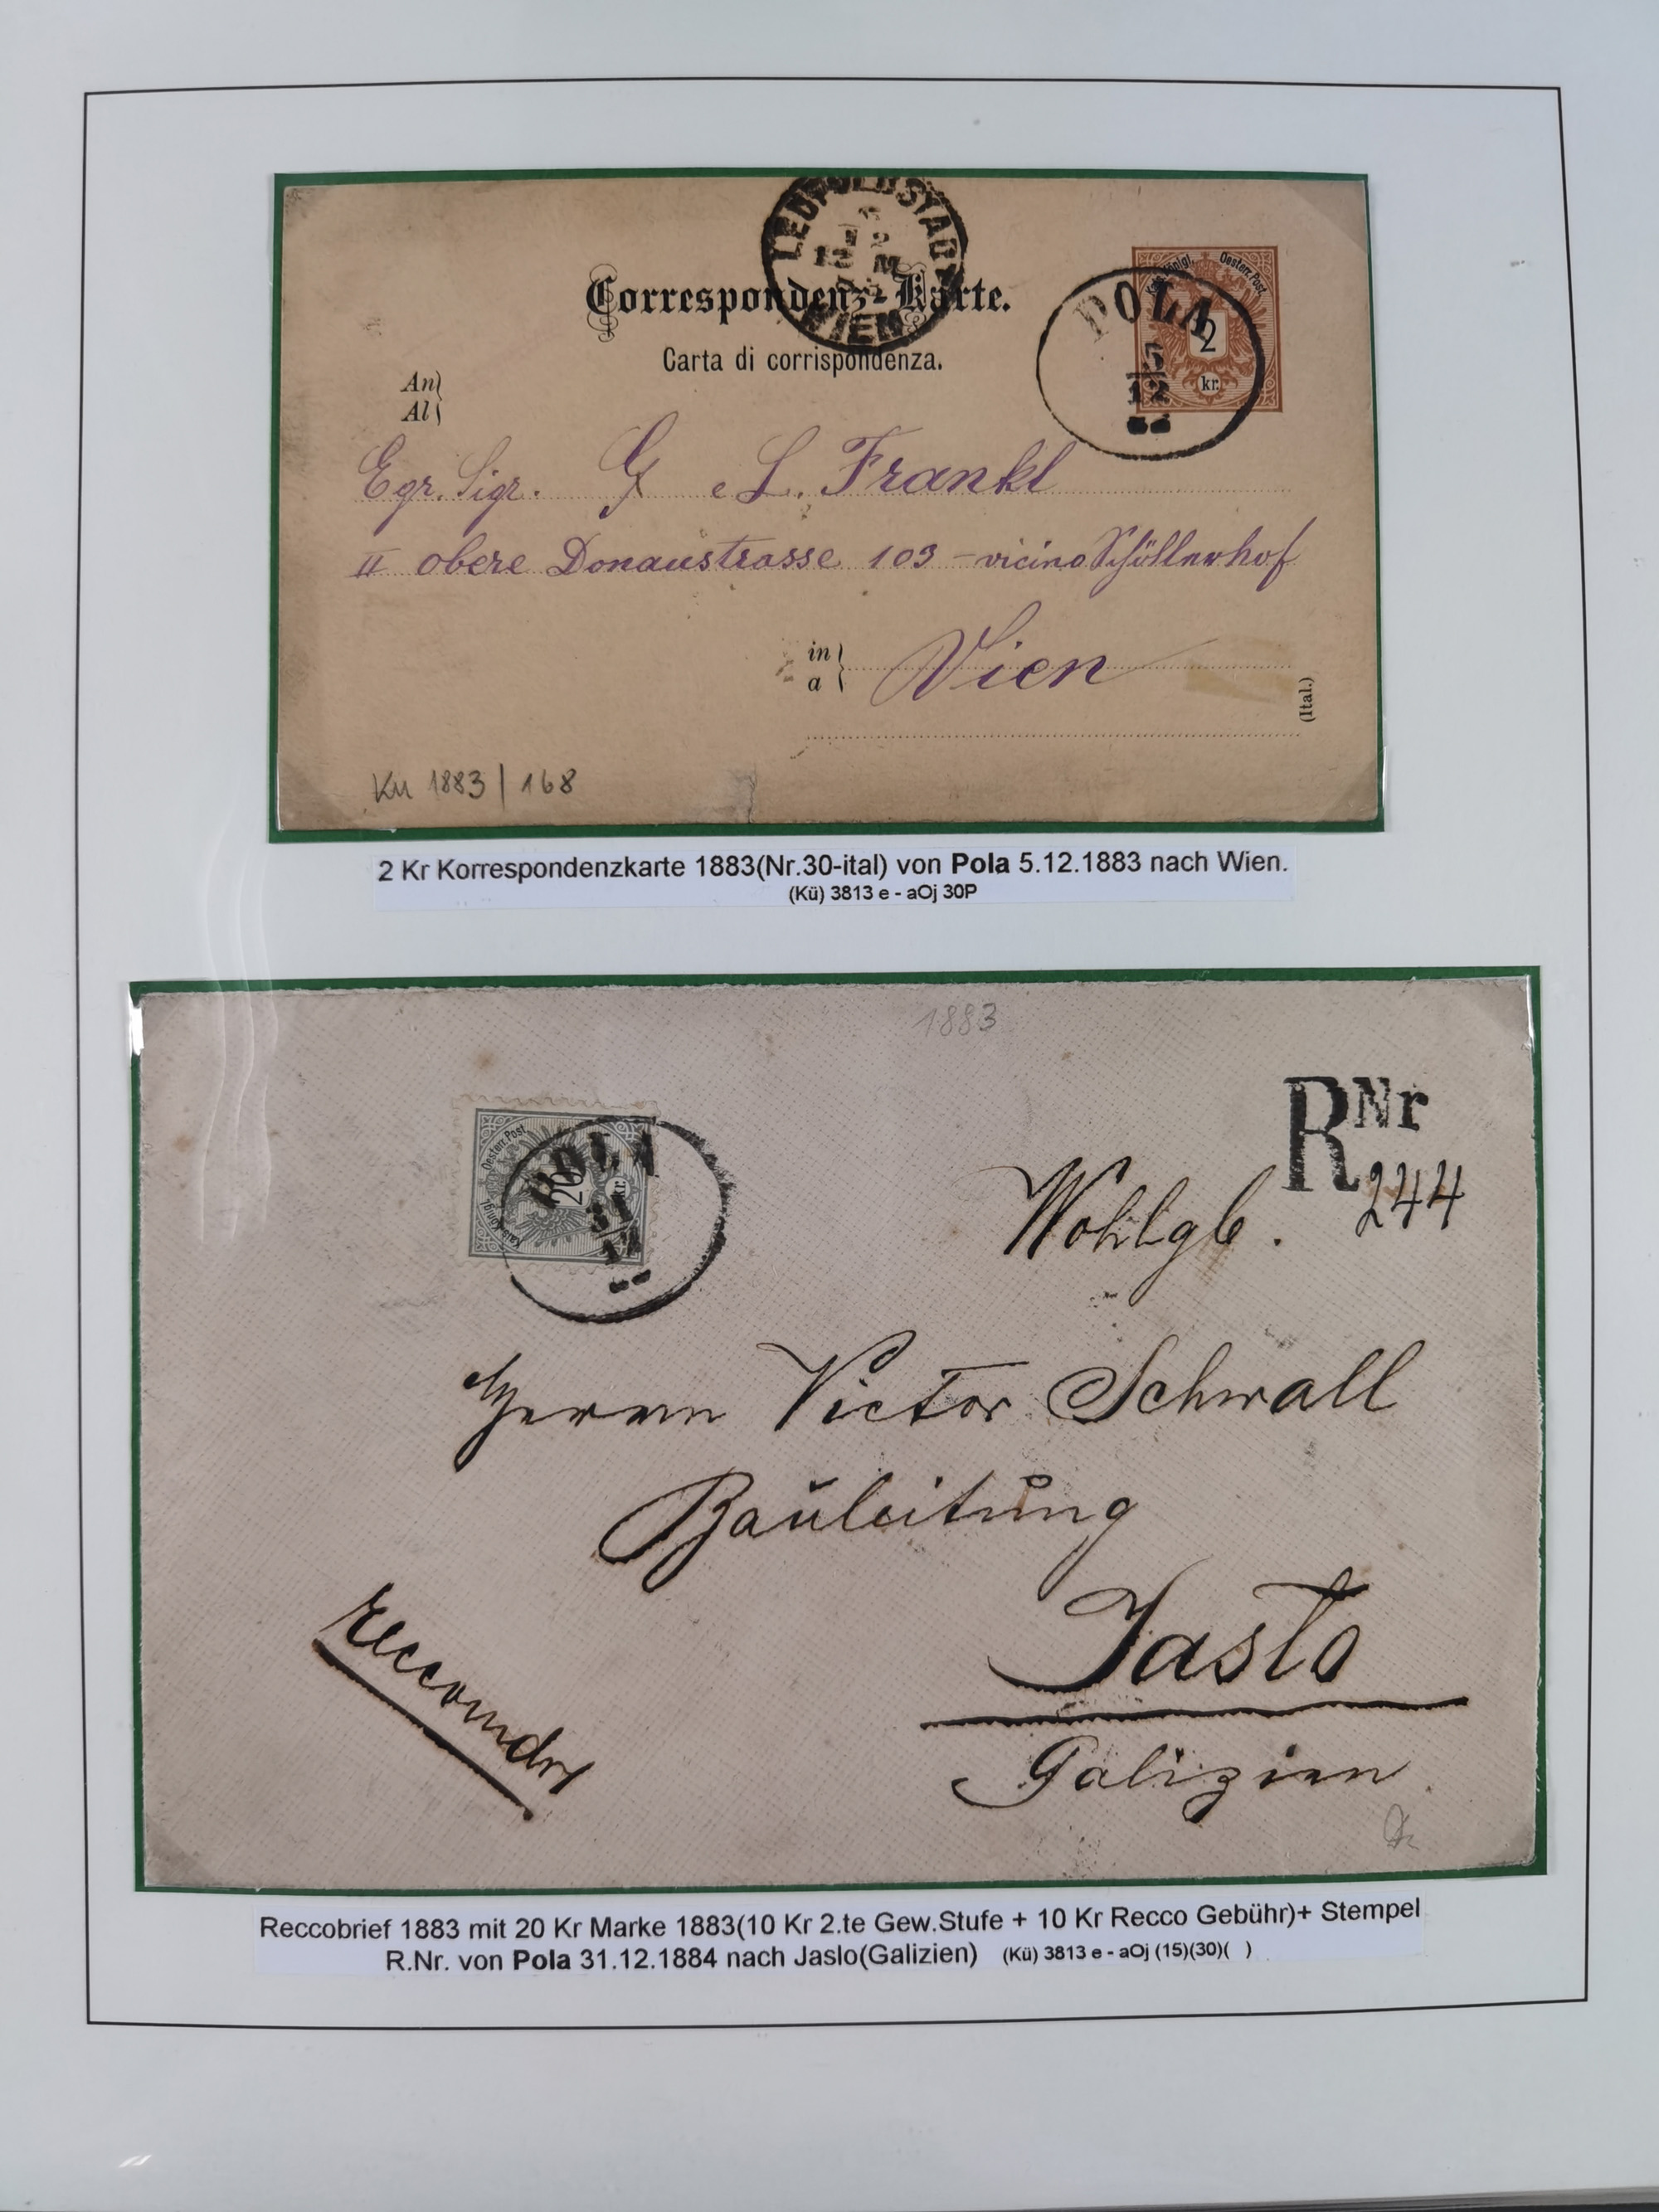 LEOPOLDSTADT
WIEN
Correspondenz-Karte.
Carta di corrispondenza.
Kais. Königl. Oesterr. Post
2
kr.
POLA
5
12
An
Al
Egr. Sigr. G e L. Frankl
II obere Donaustrasse 103 - vicino Schöllerhof
in
a
Wien
(Ital.)
Kü 1883 | 168
2 Kr Korrespondenzkarte 1883(Nr.30-ital) von Pola 5.12.1883 nach Wien.
(Kü) 3813 e - aOj 30P
1883
R Nr
244
Kais. Königl. Oesterr. Post
20
kr.
POLA
31
12
Wohlgb.
Herrn Victor Schwall
Bauleitung
Jaslo
Galizien
recomdt
Reccobrief 1883 mit 20 Kr Marke 1883(10 Kr 2.te Gew.Stufe + 10 Kr Recco Gebühr)+ Stempel
R.Nr. von Pola 31.12.1884 nach Jaslo(Galizien) (Kü) 3813 e - aOj (15)(30)( )